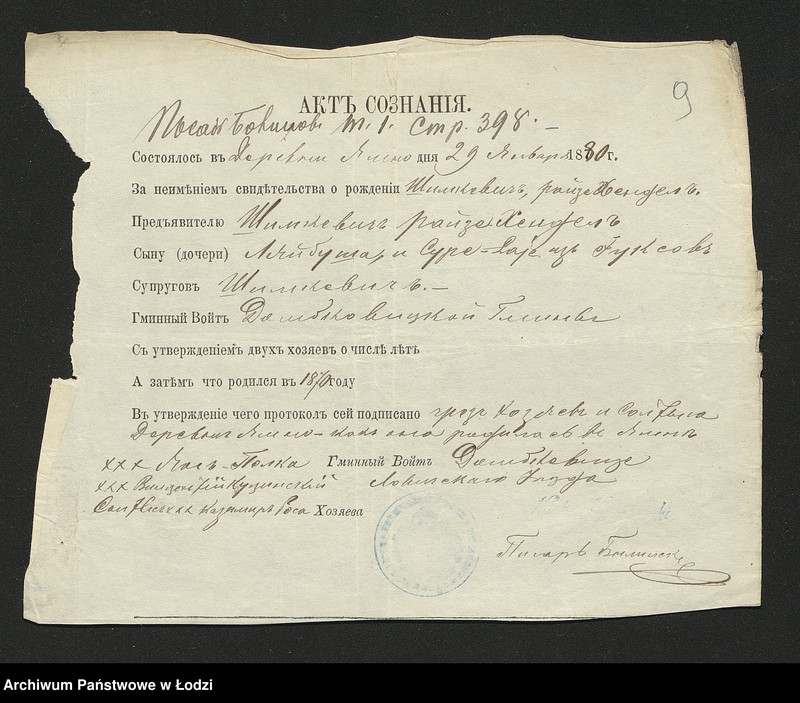 9
АКТЪ СОЗНАНІЯ.
Т. 1. Стр. 398. –
Состоялось въ Деревни дня 29 Января 1880 г.
За неимѣніемъ свидѣтельства о рожденіи Шимкевичъ, райзе Хенделъ.
Предъявителю Шимкевичъ райзе Хенделъ
Сыну (дочери) Лейбуша, и Суре- изъ Фуксовъ
Супруговъ Шимкевичъ. –
Гминный Войтъ Домбковицкой Гмины
Съ утвержденіемъ двухъ хозяевъ о числѣ лѣтъ
А затѣмъ что родился въ 1870 году
Въ утвержденіе чего протоколъ сей подписано хозяевъ и Солтыса
Деревни родилась въ
ххх Полка Гминный Войтъ Домбковице
ххх Кузинскій Ловичскаго Уезда
Солтысъ ххх Казимиръ Роса Хозяева
Писаръ
Archiwum Państwowe w Łodzi